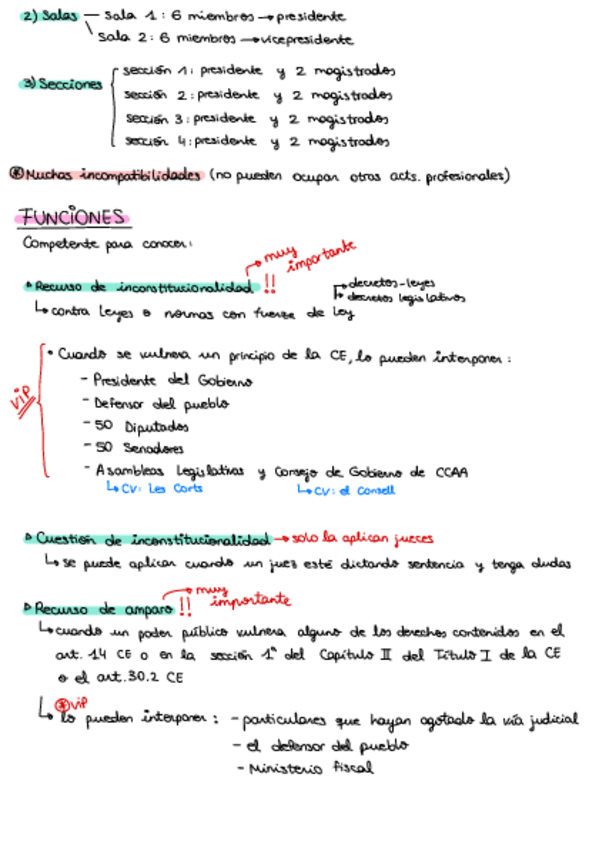 2) Salas — Sala 1: 6 miembros → presidente
Sala 2: 6 miembros → vicepresidente
3) Secciones
sección 1: presidente y 2 magistrados
sección 2: presidente y 2 magistrados
sección 3: presidente y 2 magistrados
sección 4: presidente y 2 magistrados
* Muchas incompatibilidades (no pueden ocupar otras acts. profesionales)
FUNCIONES
Competente para conocer:
muy importante
▷ Recurso de inconstitucionalidad !!
→ decretos-leyes
→ decretos legislativos
↳ contra Leyes o normas con fuerza de Ley
VIP
• Cuando se vulnera un principio de la CE, lo pueden interponer:
- Presidente del Gobierno
- Defensor del pueblo
- 50 Diputados
- 50 Senadores
- Asambleas Legislativas y Consejo de Gobierno de CCAA
↳ CV: Les Corts ↳ CV: el Consell
▷ Cuestión de inconstitucionalidad → solo la aplican jueces
↳ se puede aplicar cuando un juez esté dictando sentencia y tenga dudas
▷ Recurso de amparo !! → muy importante
↳ cuando un poder público vulnera alguno de los derechos contenidos en el
art. 14 CE o en la sección 1ª del Capítulo II del Título I de la CE
o el art. 30.2 CE
* VIP
↳ lo pueden interponer: - particulares que hayan agotado la vía judicial
- el defensor del pueblo
- Ministerio fiscal